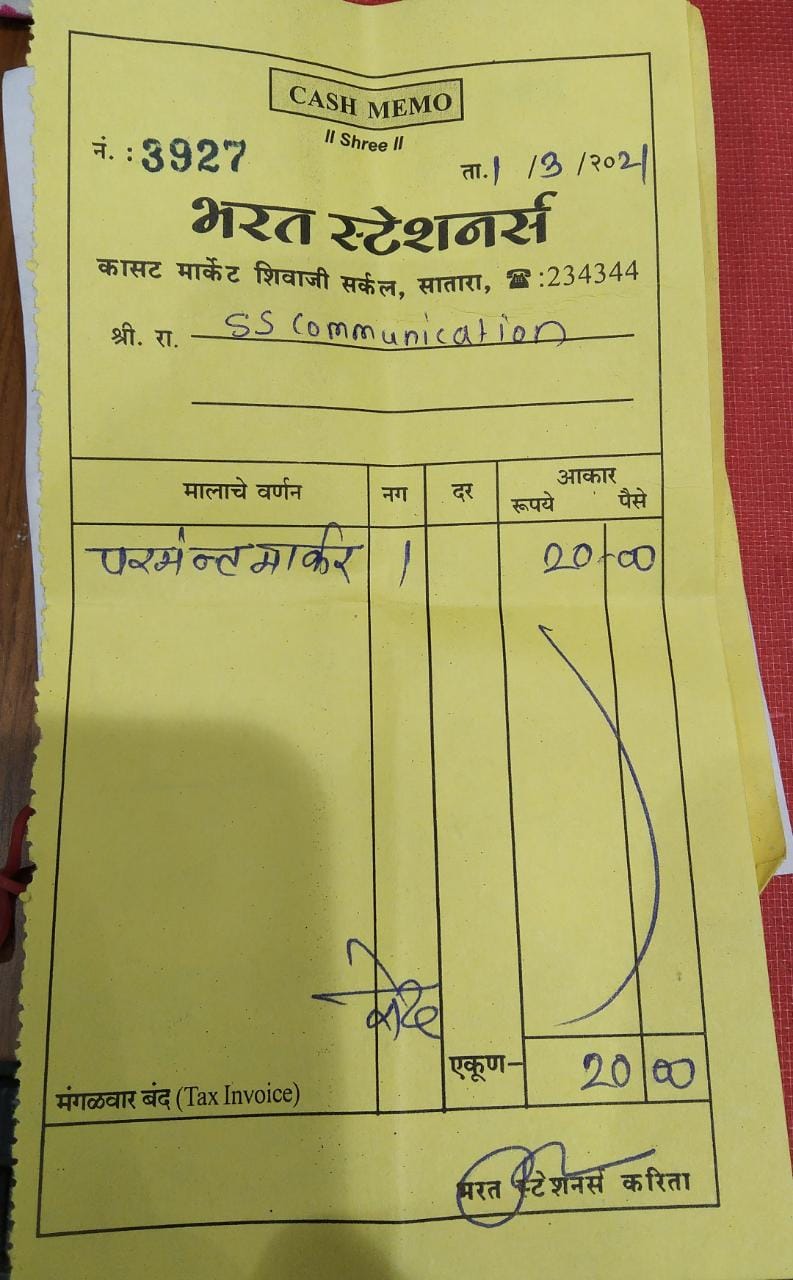 CASH MEMO
॥ Shree ॥
नं. : 3927
ता. 1 /3 /२०21
भरत स्टेशनर्स
कासट मार्केट शिवाजी सर्कल, सातारा, ☎ :234344
श्री. रा. SS Communication
मालाचे वर्णन नग दर आकार
रूपये पैसे
परमंन्ट मार्कर 1 20-00
एकूण- 20 00
मंगळवार बंद (Tax Invoice)
भरत स्टेशनर्स करिता